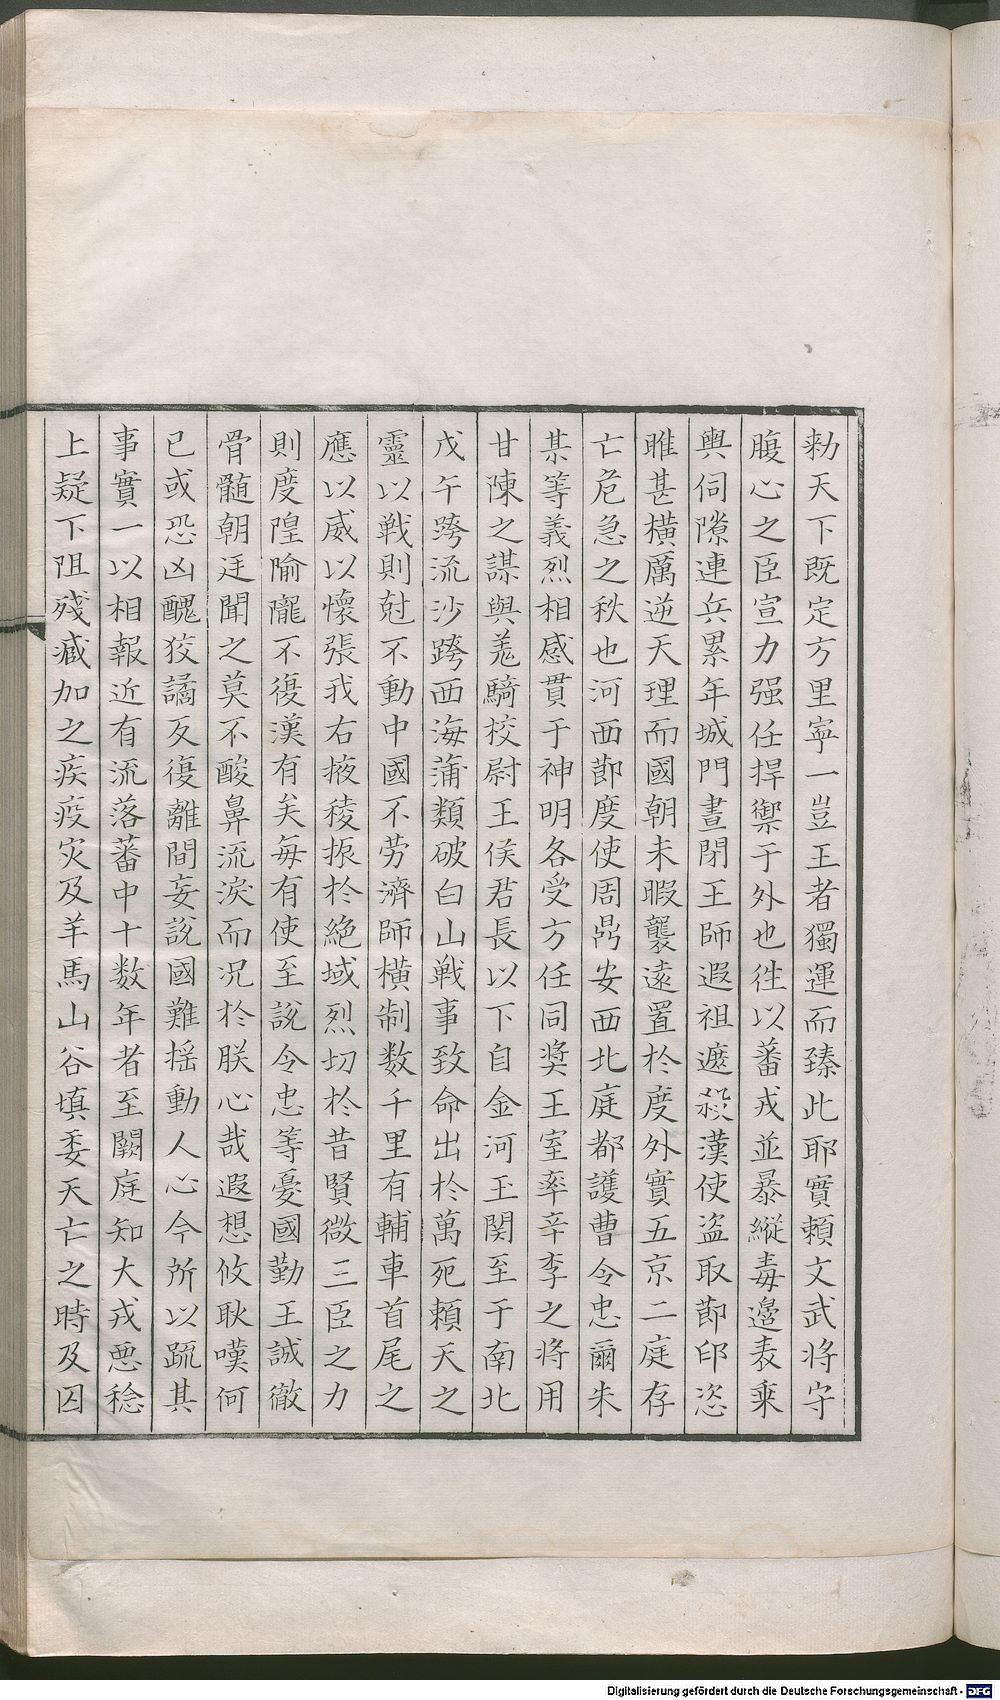 勑天下既定方里寧一豈王者獨運而臻此耶實賴文武將守
腹心之臣宣力强任捍禦于外也徃以蕃戎並暴縱毒邉表乘
輿伺隙連兵累年城門晝閉王師遐祖遮殺漢使盗取莭印恣
睢甚橫厲逆天理而國朝未暇襲遠置於度外實五京二庭存
亡危急之秋也河西莭度使周鼎安西北庭都護曹令忠爾朱
某等義烈相感貫于神明各受方任同奬王室率辛李之將用
甘陳之謀與羗騎校尉王侯君長以下自金河玉関至于南北
戊午跨流沙跨西海蒲類破白山戰事致命出於萬死賴天之
靈以戰則尅不動中國不劳濟師橫制数千里有輔車首尾之
應以威以懷張我右掖稜振於絶域烈切於昔賢微三臣之力
則度隍隃隴不復漢有矣每有使至説令忠等憂國勤王誠徹
骨髄朝廷聞之莫不酸鼻流涙而况於朕心哉遐想攸耿嘆何
已或恐凶醜狡譎反復離間妄説國難揺動人心今所以䟽其
事實一以相報近有流落蕃中十数年者至闕庭知大戎悪稔
上疑下阻殘臧加之疾疫灾及羊馬山谷填委天亡之時及囚
Digitalisierung gefördert durch die Deutsche Forschungsgemeinschaft - DFG